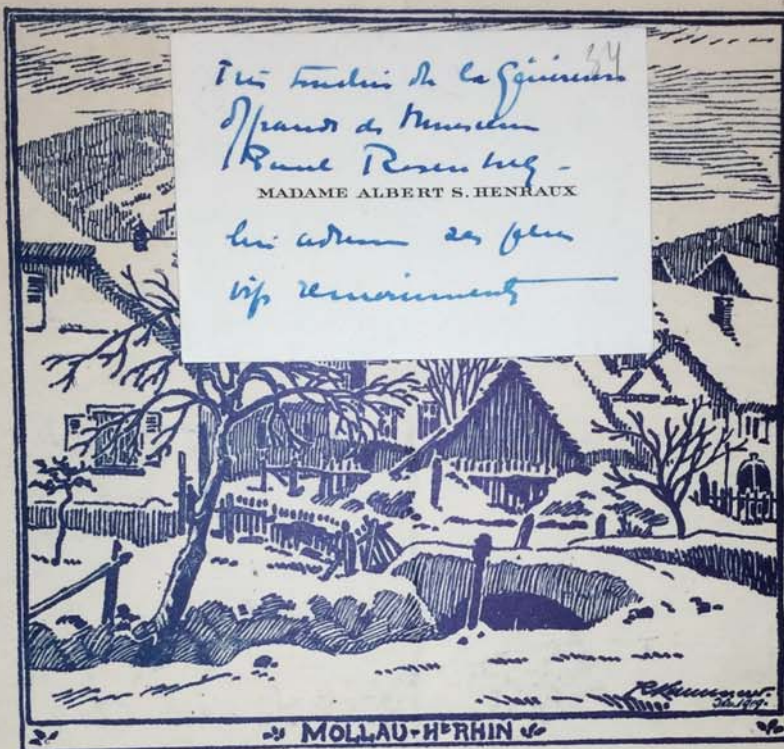 34
Très touchée de la généreuse
offrande de Monsieur
Paul Rosenberg -
MADAME ALBERT S. HENRAUX
lui adresse ses plus
vifs remerciements
MOLLAU-HᵗRHIN